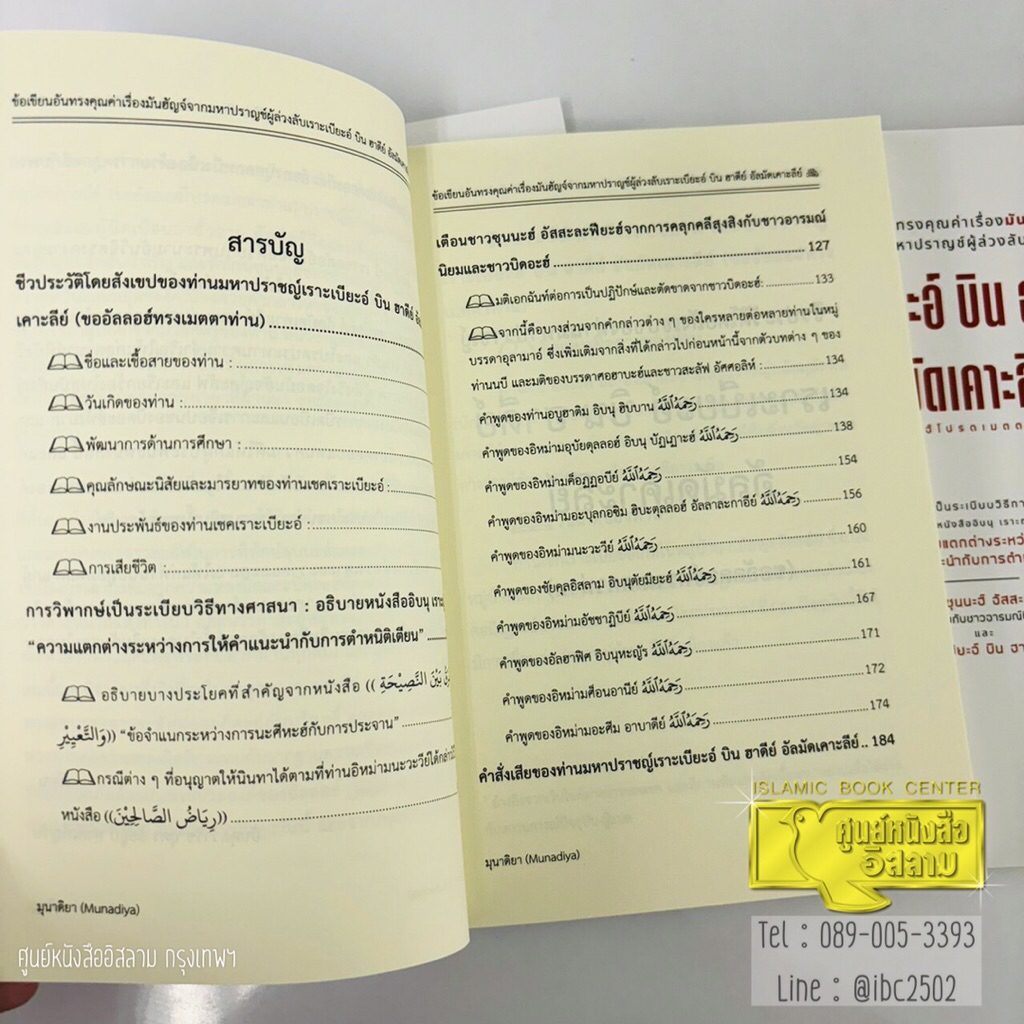 ข้อเขียนอันทรงคุณค่าเรื่องมันฮัญจ์จากมหาปราญช์ผู้ล่วงลับเราะเบียะอ์ บิน ฮาดีย์
สารบัญ
ชีวประวัติโดยสังเขปของท่านมหาปราชญ์เราะเบียะอ์ บิน ฮาดีย์
เคาะลีย์ (ขออัลลอฮ์ทรงเมตตาท่าน)
ชื่อและเชื้อสายของท่าน :
วันเกิดของท่าน :
พัฒนาการด้านการศึกษา :
คุณลักษณะนิสัยและมารยาทของท่านเชคเราะเบียะอ์ :
งานประพันธ์ของท่านเชคเราะเบียะอ์ :
การเสียชีวิต :
การวิพากษ์เป็นระเบียบวิธีทางศาสนา : อธิบายหนังสืออิบนุ
"ความแตกต่างระหว่างการให้คำแนะนำกับการตำหนิติเตียน"
อธิบายบางประโยคที่สำคัญจากหนังสือ (( بَيْنَ النَّصِيْحَةِ
وَالتَّعْيِيْرِ)) "ข้อจำแนกระหว่างการนะศีหะฮ์กับการประจาน"
กรณีต่าง ๆ ที่อนุญาตให้นินทาได้ตามที่ท่านอิหม่ามนะวะวีย์ได้
หนังสือ ((رِيَاضُ الصَّالِحِيْنَ))
มุนาดิยา (Munadiya)
ข้อเขียนอันทรงคุณค่าเรื่องมันฮัญจ์จากมหาปราญช์ผู้ล่วงลับเราะเบียะอ์ บิน ฮาดีย์ อัลมัดเคาะลีย์
เตือนชาวซุนนะฮ์ อัสสะละฟียะฮ์จากการคลุกคลีสุงสิงกับชาวอารมณ์
นิยมและชาวบิดอะฮ์ 127
มติเอกฉันท์ต่อการเป็นปฏิปักษ์และตัดขาดจากชาวบิดอะฮ์: 133
จากนี้คือบางส่วนจากคำกล่าวต่าง ๆ ของใครหลายต่อหลายท่านในหมู่
บรรดาอุลามาอ์ ซึ่งเพิ่มเติมจากสิ่งที่ได้กล่าวไปก่อนหน้านี้จากตัวบทต่าง ๆ ของ
ท่านนบี และมติของบรรดาศอฮาบะฮ์และชาวสะลัฟ อัศศอลิห์ : 134
คำพูดของท่านอบูฮาติม อิบนุ ฮิบบาน رَحِمَهُ اللَّهُ 134
คำพูดของอิหม่ามอุบัยดุลลอฮ์ อิบนุ บัฏเฏาะฮ์ رَحِمَهُ اللَّهُ 138
คำพูดของอิหม่ามค็อฏฏอบีย์ رَحِمَهُ اللَّهُ 154
คำพูดของอิหม่ามอะบุลกอซิม ฮิบะตุลลอฮ์ อัลลาละกาอีย์ رَحِمَهُ اللَّهُ 156
คำพูดของอิหม่ามนะวะวีย์ رَحِمَهُ اللَّهُ 160
คำพูดของชัยคุลอิสลาม อิบนุตัยมียะฮ์ رَحِمَهُ اللَّهُ 161
คำพูดของอิหม่ามอัชชาฏิบีย์ رَحِمَهُ اللَّهُ 167
คำพูดของอัลฮาฟิศ อิบนุหะญัร رَحِمَهُ اللَّهُ 171
คำพูดของอิหม่ามศ็อนอานีย์ رَحِمَهُ اللَّهُ 172
คำพูดของอิหม่ามอะศีม อาบาดีย์ رَحِمَهُ اللَّهُ 174
คำสั่งเสียของท่านมหาปราชญ์เราะเบียะอ์ บิน ฮาดีย์ อัลมัดเคาะลีย์ 184
มุนาดิยา (Munadiya)
ทรงคุณค่าเรื่อง
หาปราญช์ผู้ล่วงลับ
ะอ์ บิน
ัดเคาะลี
โปรดเมตต
ป็นระเบียบวิธีกา
หนังสืออิบนุ เราะ
แตกต่างระหว่
ะนำกับการตำห
ซุนนะฮ์ อัสสะ
กับชาวอารมณ์
และ
ียะอ์ บิน ฮา
ISLAMIC BOOK CENTER
ศูนย์หนังสือ
อิสลาม
Tel : 089-005-3393
Line : @ibc2502
ศูนย์หนังสืออิสลาม กรุงเทพฯ